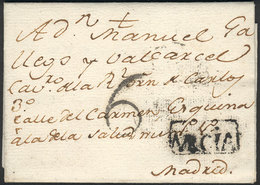 A Dn. Manuel Ga
llego y Valcarcel
Cavro. dla Rl. orn d Carlos
3o.
calle del Carmen Esquina
ala dela Salud nu
6
MRCIA
Madrid.